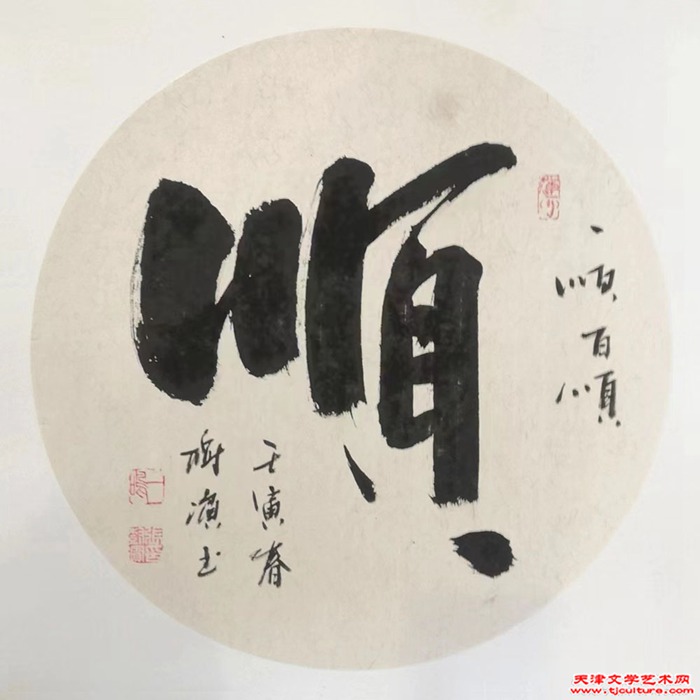 順
一順百順
壬寅春
濱书
天津文学艺术网
www.tjculture.com